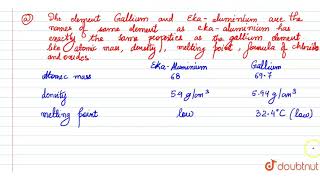 (a) The element Gallium and Eka-aluminium are the
names of same element as eka-aluminium has
exactly the same properties as the gallium element
like (atomic mass, density), melting point, formula of chloride
and oxides
Eka-Aluminium Gallium
Atomic mass 68 69.7
density 5.9 g/cm³ 5.94 g/cm³
melting point low 32.4°C (low)
doubtnut